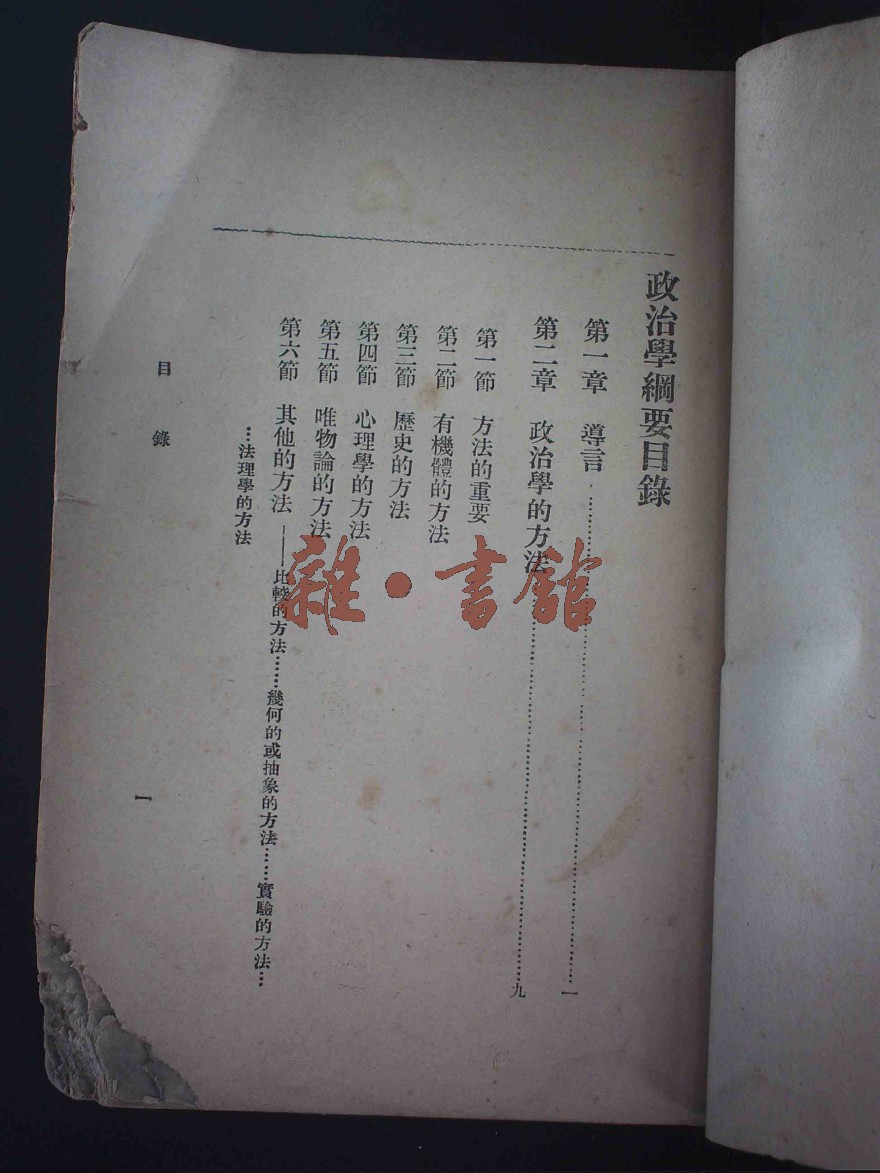 政治學綱要目錄
第一章　導言……一
第二章　政治學的方法……九
第一節　方法的重要
第二節　有機體的方法
第三節　歷史的方法
第四節　心理學的方法
第五節　唯物論的方法
第六節　其他的方法——比較的方法……幾何的或抽象的方法……實驗的方法…
…法理學的方法
目錄
一
雜・書館